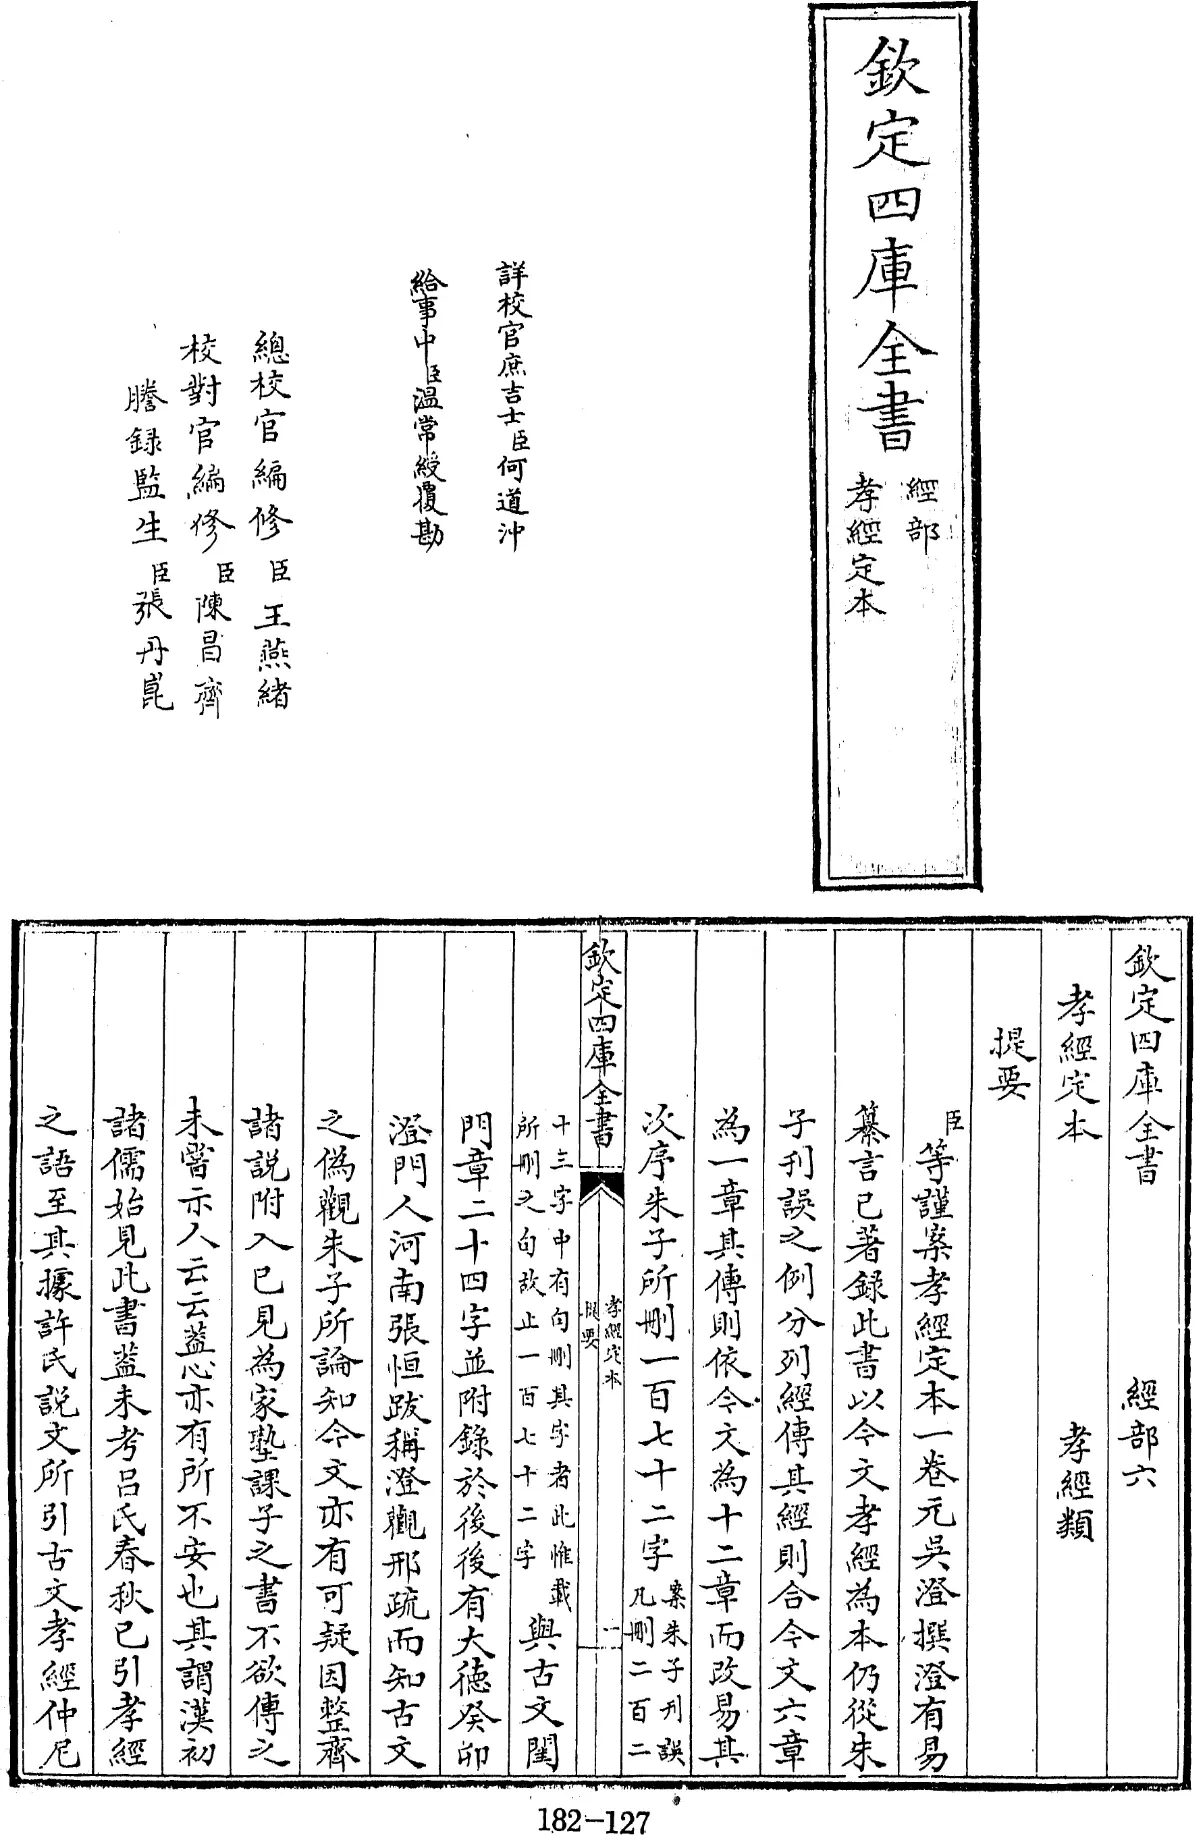 欽定四庫全書
經部
孝經定本
詳校官庶吉士臣何道沖
給事中臣温常綬覆勘
總校官編修臣王燕緒
校對官編修臣陳昌齊
謄録監生臣張丹崑
欽定四庫全書 經部六
孝經定本 孝經類
提要
臣等謹案孝經定本一卷元吳澄撰澄有易
纂言已著錄此書以今文孝經為本仍從朱
子刊誤之例分列經傳其經則合今文六章
為一章其傳則依今文為十二章而改易其
次序朱子所刪一百七十二字案朱子刊誤
凡刪二百二
欽定四庫全書
孝經定本
提要
一
十三字中有句刪其字者此惟載
所刪之句故止一百七十二字與古文閨
門章二十四字並附錄於後後有大德癸卯
澄門人河南張恒跋稱澄觀邢疏而知古文
之偽觀朱子所論知今文亦有可疑因整齊
諸說附入已見為家塾課子之書不欲傳之
未嘗示人云云蓋心亦有所不安也其謂漢初
諸儒始見此書蓋未考吕氏春秋已引孝經
之語至其據許氏説文所引古文孝經仲尼
182-127